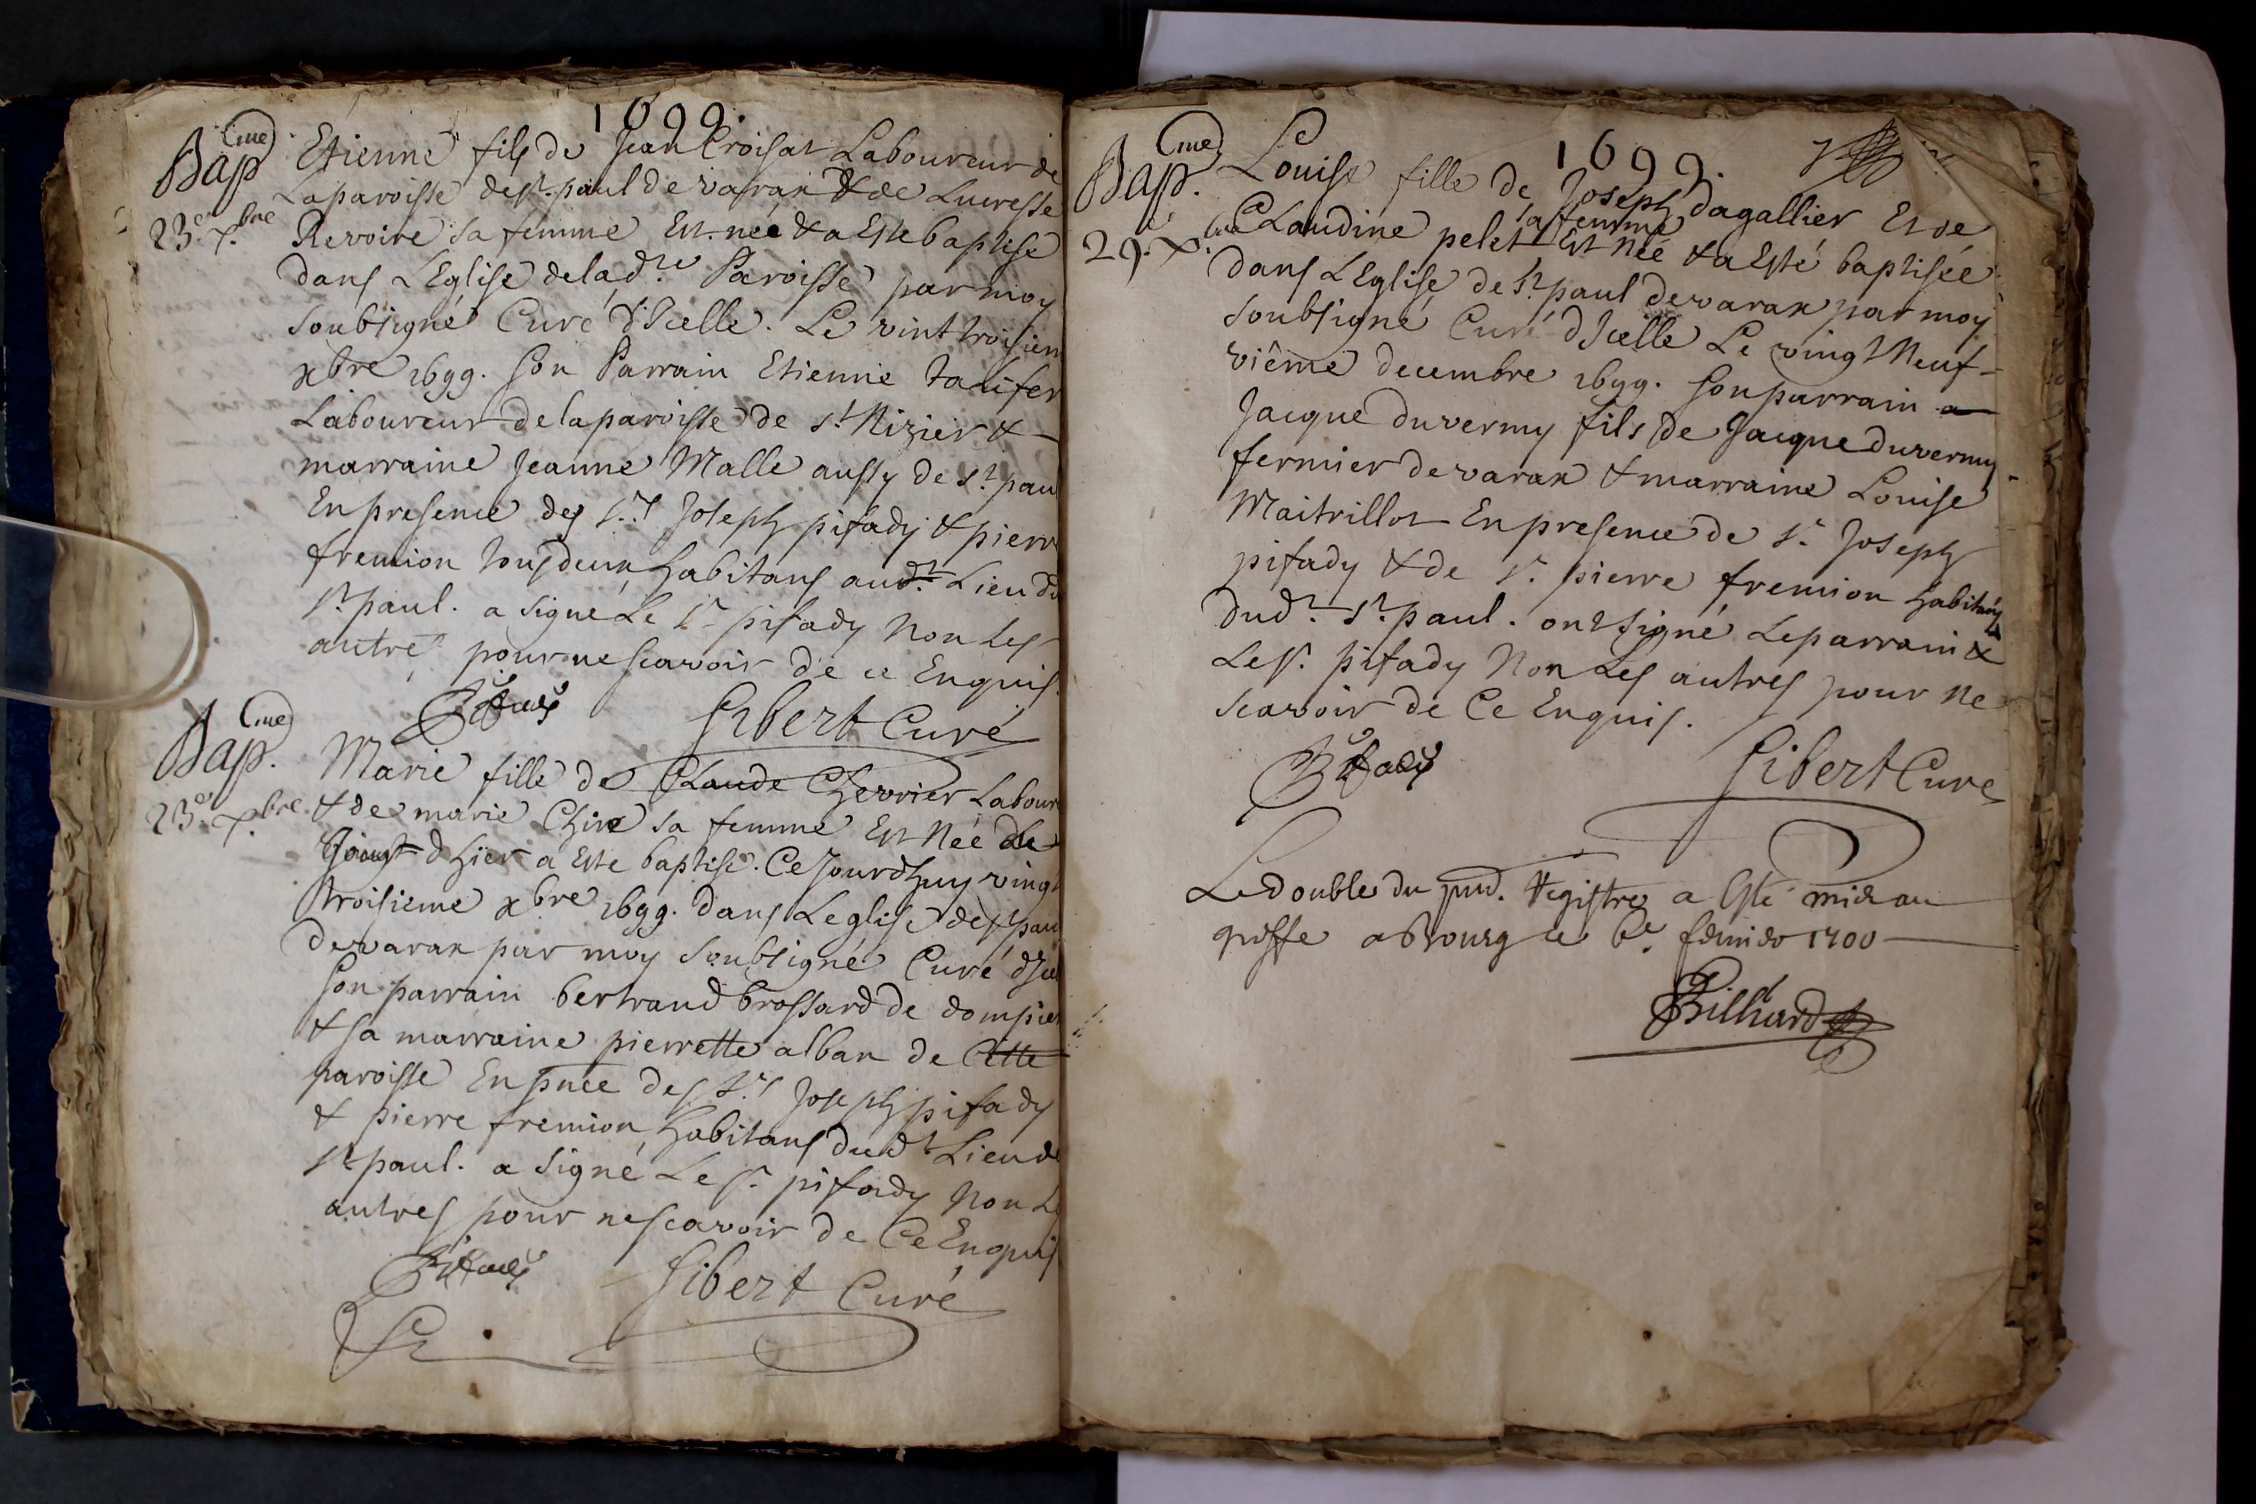 1699.
Bap^me
23^e x^bre
Etienne fils de Jean Croisat Laboureur de
Laparoisse de st. paul de varax & de Lucresse
Revoire sa femme Est née & a Este baptisé
dans LEglise de lad^te Paroisse par moy
soubsigné Curé d'Icelle. Le vint troisiem
xbre 1699. son Parrain Etienne
Laboureur de la paroisse de s^t Nizier &
marraine Jeanne Malle aussy de s^t pau
En presence des s^rs Joseph pisady & pierr
fremion tous deux habitans aud^t Lieu du
s^t paul. a signé Le s^r pisady Non Les
autre pour ne scavoir de ce Enquis.
Pisady Gibert Curé
Bap^me
23^e x^bre
Marie fille de Claude Chevrier Labour
& de marie Chire sa femme Est Née Le
Jour d hier a Este baptisé. Ce Jourdhuy vingt
troisieme xbre 1699. dans Leglise de st pau
de varax par moy soubsigné Curé d'Ice
son parrain bertrand brossard de dompier
& sa marraine pierrette alban de Cette
paroisse En pnce des s^rs Joseph pisady
& pierre fremion habitans dud^t Lieu de
s^t paul. a signé Le s^r pisady Non Le
autres pour ne scavoir de Ce Enquis
Pisady Gibert Curé
1699.
Bap^me
29. x^bre
Louise fille de Joseph dagallier Et de
Claudine pelet sa femme Est Née & a Esté baptisée
dans LEglise de s^t paul de varax par moy
soubsigné Curé d'Icelle Le vingt Neuf-
viême decembre 1699. son parrain a
Jacque duvermy fils de Jacque duvermy
fermier de varax & marraine Louise
Maitrillot En presence de s^r Joseph
pisady & de s^r pierre fremion habitans
dud^t s^t paul. ont signé Le parrain &
Le s^r pisady Non Les autres pour ne
scavoir de Ce Enquis.
Pisady Gibert Curé
Le double du pnt. Registre a Esté mis au
greffe a Bourg le 6^e fevrier 1700
Billiard